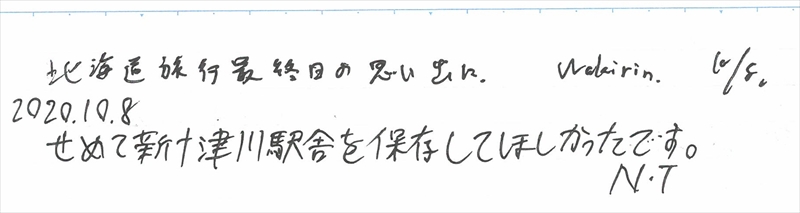 北海道旅行最終日の思い出に. Wakirin. 10/8.
2020.10.8
せめて新十津川駅舎を保存してほしかったです。
N.T